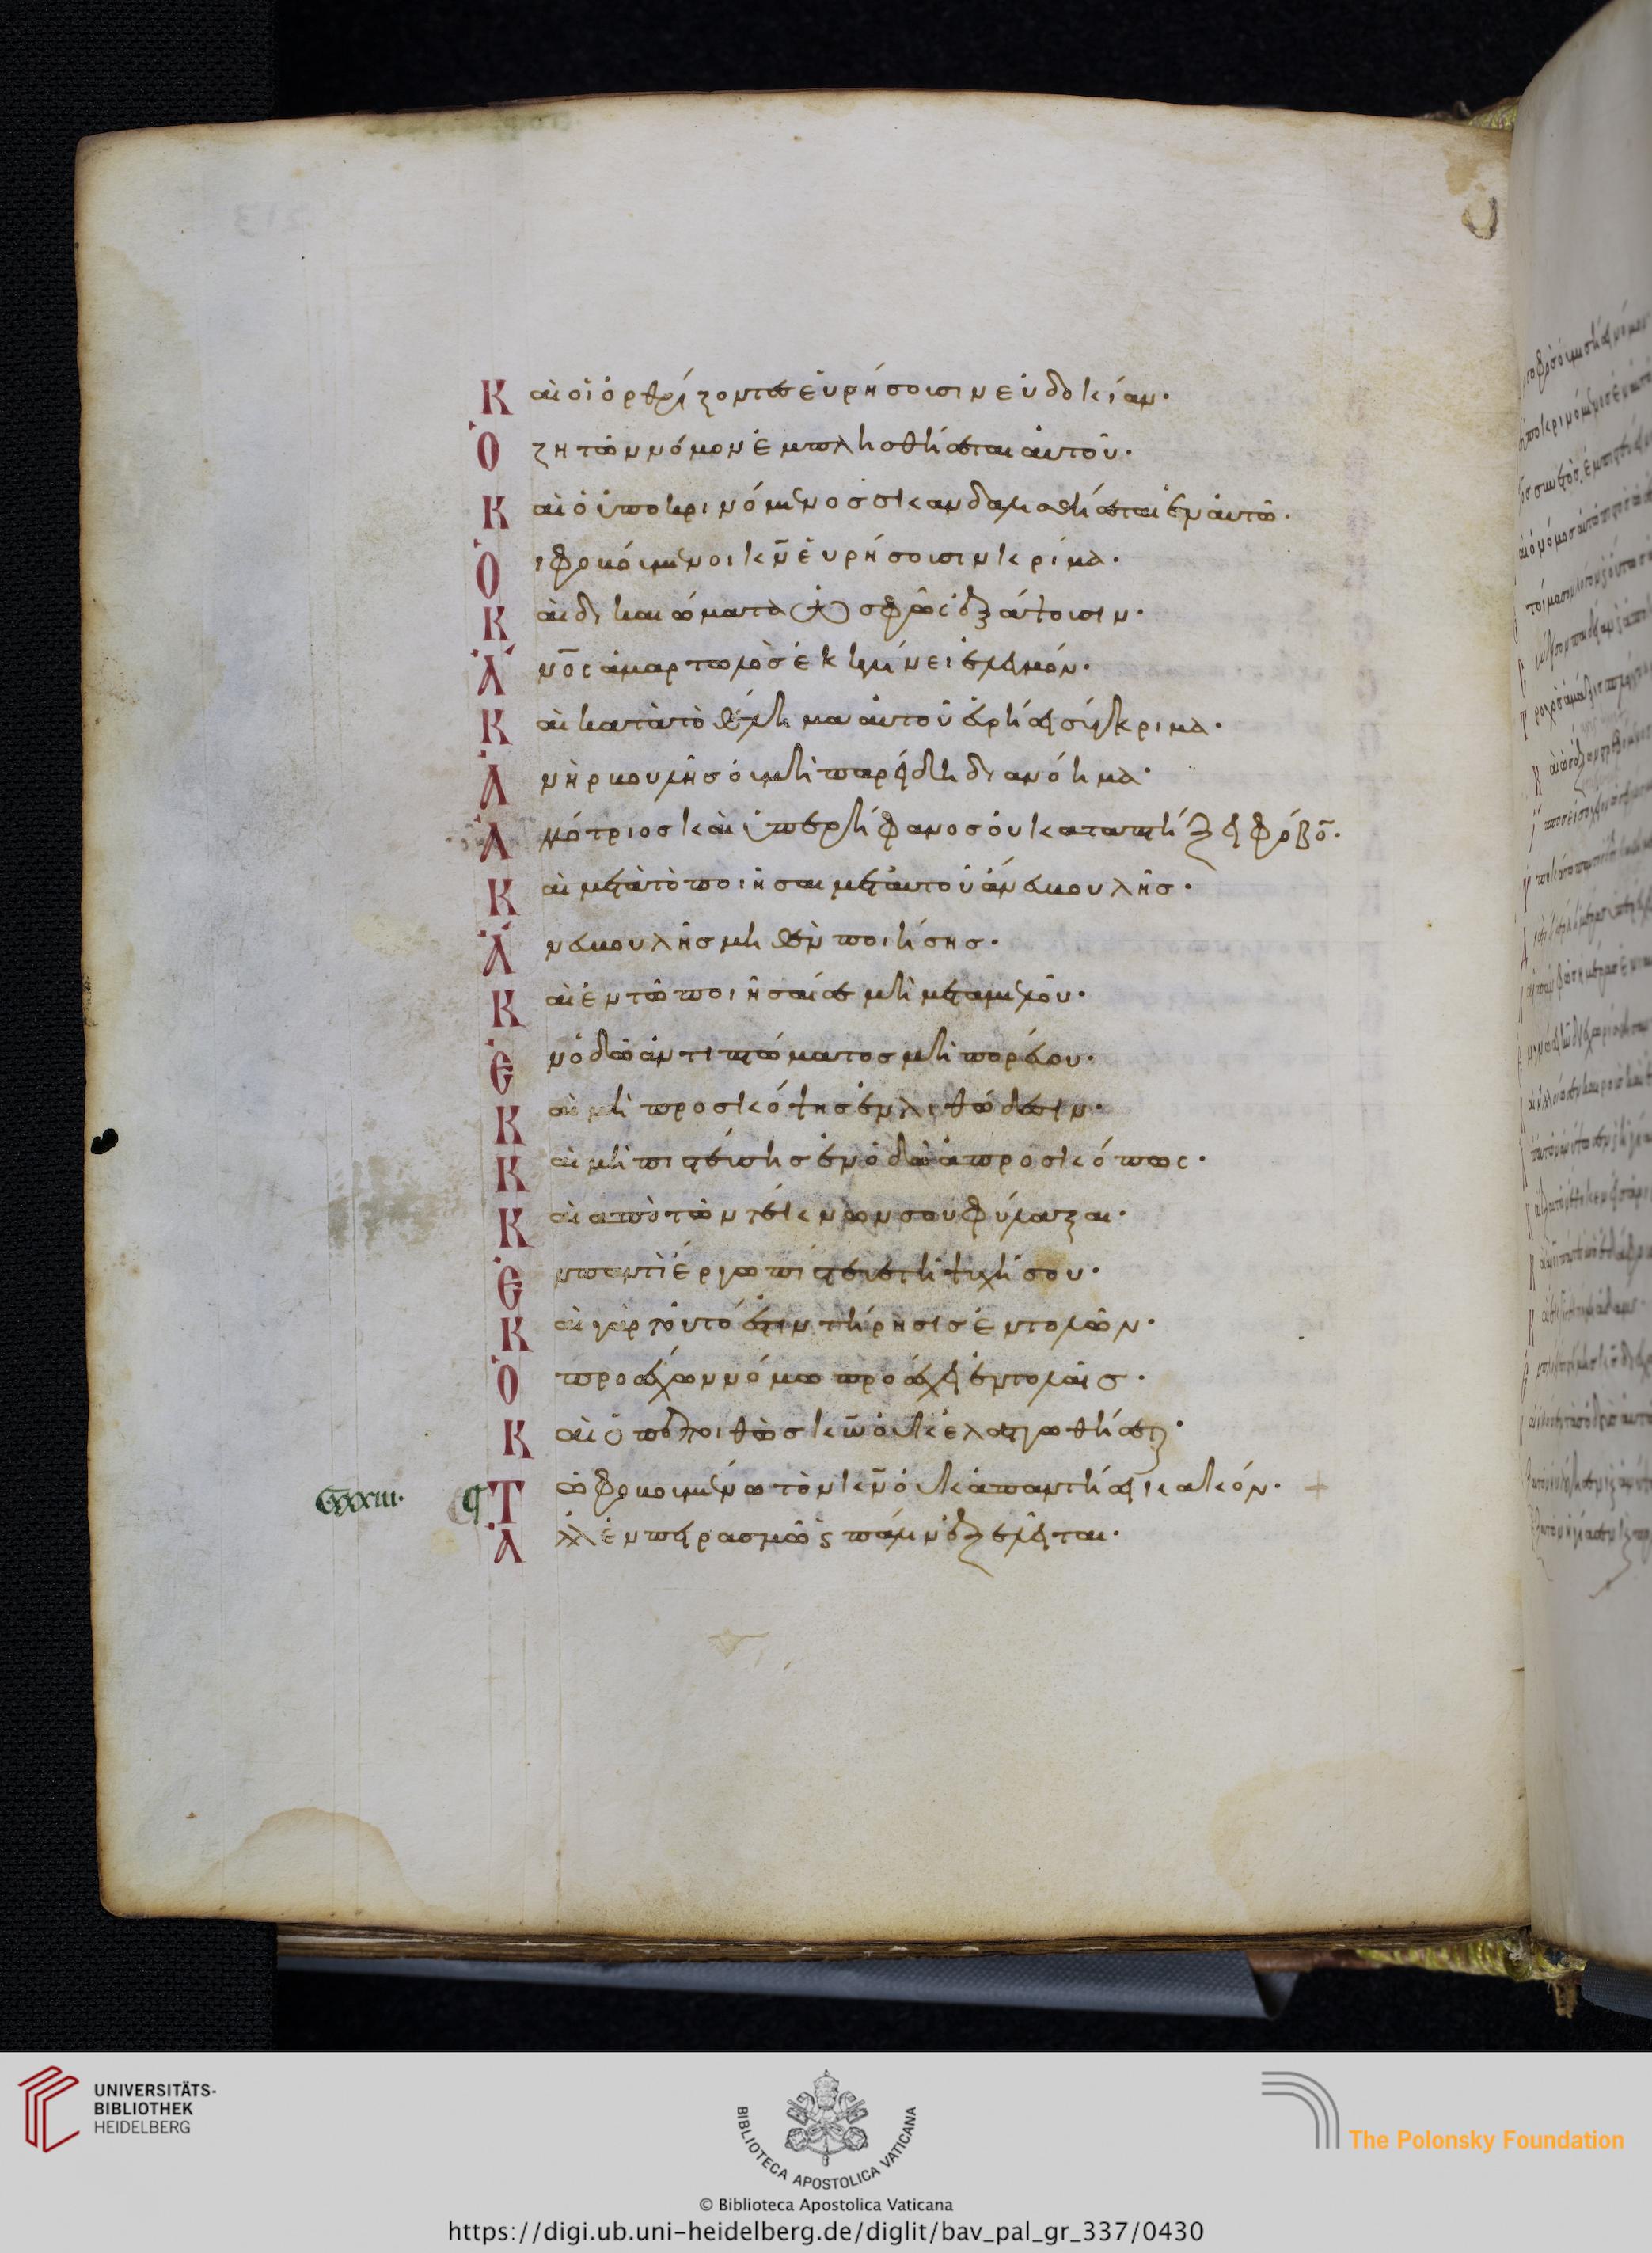 Καὶ οἱ ὀρθρίζοντες εὑρήσουσιν εὐδοκίαν·
Ὁ ζητῶν νόμον ἐμπλησθήσεται αὐτοῦ·
Καὶ ὁ ὑποκρινόμενος σκανδαλισθήσεται ἐν αὐτῶ·
Οἱ φοβούμενοι κν̅ εὑρήσουσιν κρίμα·
Καὶ δικαιώματα ὡς φῶς ἐξάψουσιν·
Ἄνο̅ς ἁμαρτωλὸς ἐκκλίνει ἐλεγμόν·
Καὶ κατὰ τὸ θέλημα αὐτοῦ εὑρήσει σύγκριμα·
Ἀνὴρ βουλῆς οὐ μὴ παρείδη διανόημα·
Ἀλλότριος καὶ ὑπερήφανος οὐ καταπτήξει φόβο̅·
Καὶ μετὰ τὸ ποιῆσαι μετ αὐτοῦ ἄνευ βουλῆς·
Ἄνευ βουλῆς μηθὲν ποιήσης·
Καὶ ἐν τῶ ποιῆσαί σε μὴ μεταμελοῦ·
Ἐν ὁδῶ ἀντιπτώματος μὴ πορεύου·
Καὶ μὴ προσκόψης ἐν λιθώδεσιν·
Καὶ μὴ πιστεύσης ἐν ὁδῶ ἀπροσκόπως·
Καὶ ἀπὸ τῶν τέκνων σου φύλαξαι·
Ἐν παντὶ ἔργω πίστευε τῆ ψυχῆ σου·
Καὶ γὰρ τοῦτό ἐστιν τήρησις ἐντολῶν·
Ὁ προσέχων νόμω προσέχει ἐντολαῖς·
Καὶ ὁ πεποιθὼς κω̅ οὐκ ἐλαττωθήσεται·
CXXXIII· ¶ Τῶ φοβουμένω τὸν κν̅ οὐκ ἀπαντήσει κακόν· +
Ἀλλ ἐν πειρασμῶ ς πάλιν ἐξελεῖται·
UNIVERSITÄTS-
BIBLIOTHEK
HEIDELBERG
BIBLIOTECA APOSTOLICA VATICANA
The Polonsky Foundation
© Biblioteca Apostolica Vaticana
https://digi.ub.uni-heidelberg.de/diglit/bav_pal_gr_337/0430